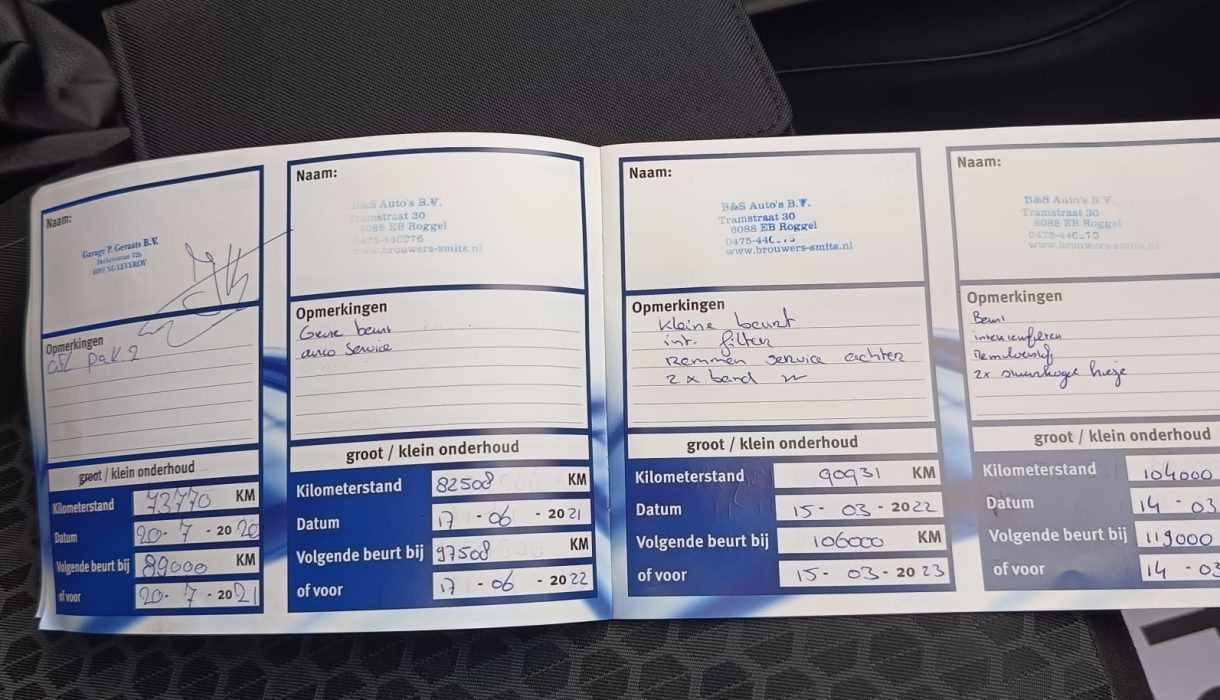 Naam:
Garage P. Geraats B.V.
6091 NG LEVEROY
Opmerkingen
pak 2
groot / klein onderhoud
Kilometerstand 73770 KM
Datum 20-7-2020
Volgende beurt bij 89000 KM
of voor 20-7-2021
Naam:
B&S Auto's B.V.
Tramstraat 30
6088 EB Roggel
www.brouwers-smits.nl
Opmerkingen
beurt
airco service
groot / klein onderhoud
Kilometerstand 82508 KM
Datum 17-06-2021
Volgende beurt bij 97508 KM
of voor 17-06-2022
Naam:
B&S Auto's B.V.
Tramstraat 30
6088 EB Roggel
www.brouwers-smits.nl
Opmerkingen
kleine beurt
int. filter
Remmen service achter
2x band
groot / klein onderhoud
Kilometerstand 90931 KM
Datum 15-03-2022
Volgende beurt bij 106000 KM
of voor 15-03-2023
Naam:
B&S Auto's B.V.
Tramstraat 30
6088 EB Roggel
www.brouwers-smits.nl
Opmerkingen
Beurt
2x stuurkogel
groot / klein onderhoud
Kilometerstand 104000
Datum 14-03
Volgende beurt bij 119000
of voor 14-03